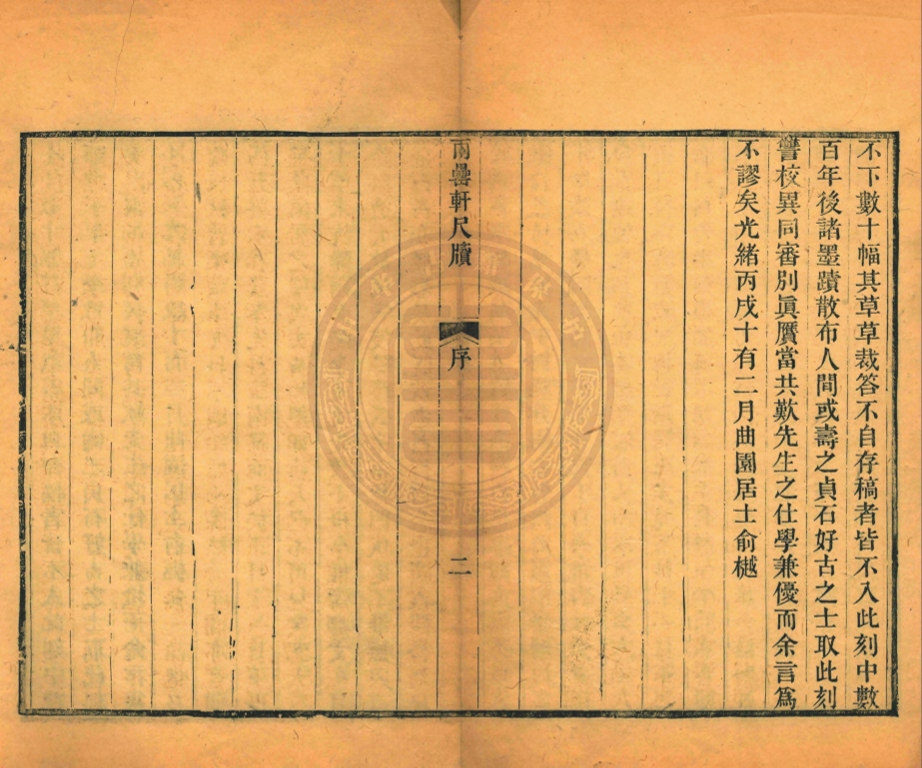 不下數十幅其草草裁答不自存稿者皆不入此刻中數
百年後諸墨蹟散布人間或壽之貞石好古之士取此刻
讐校異同審別眞贋當共歎先生之仕學兼優而余言爲
不謬矣光緒丙戌十有二月曲園居士俞樾
兩罍軒尺牘
序
二